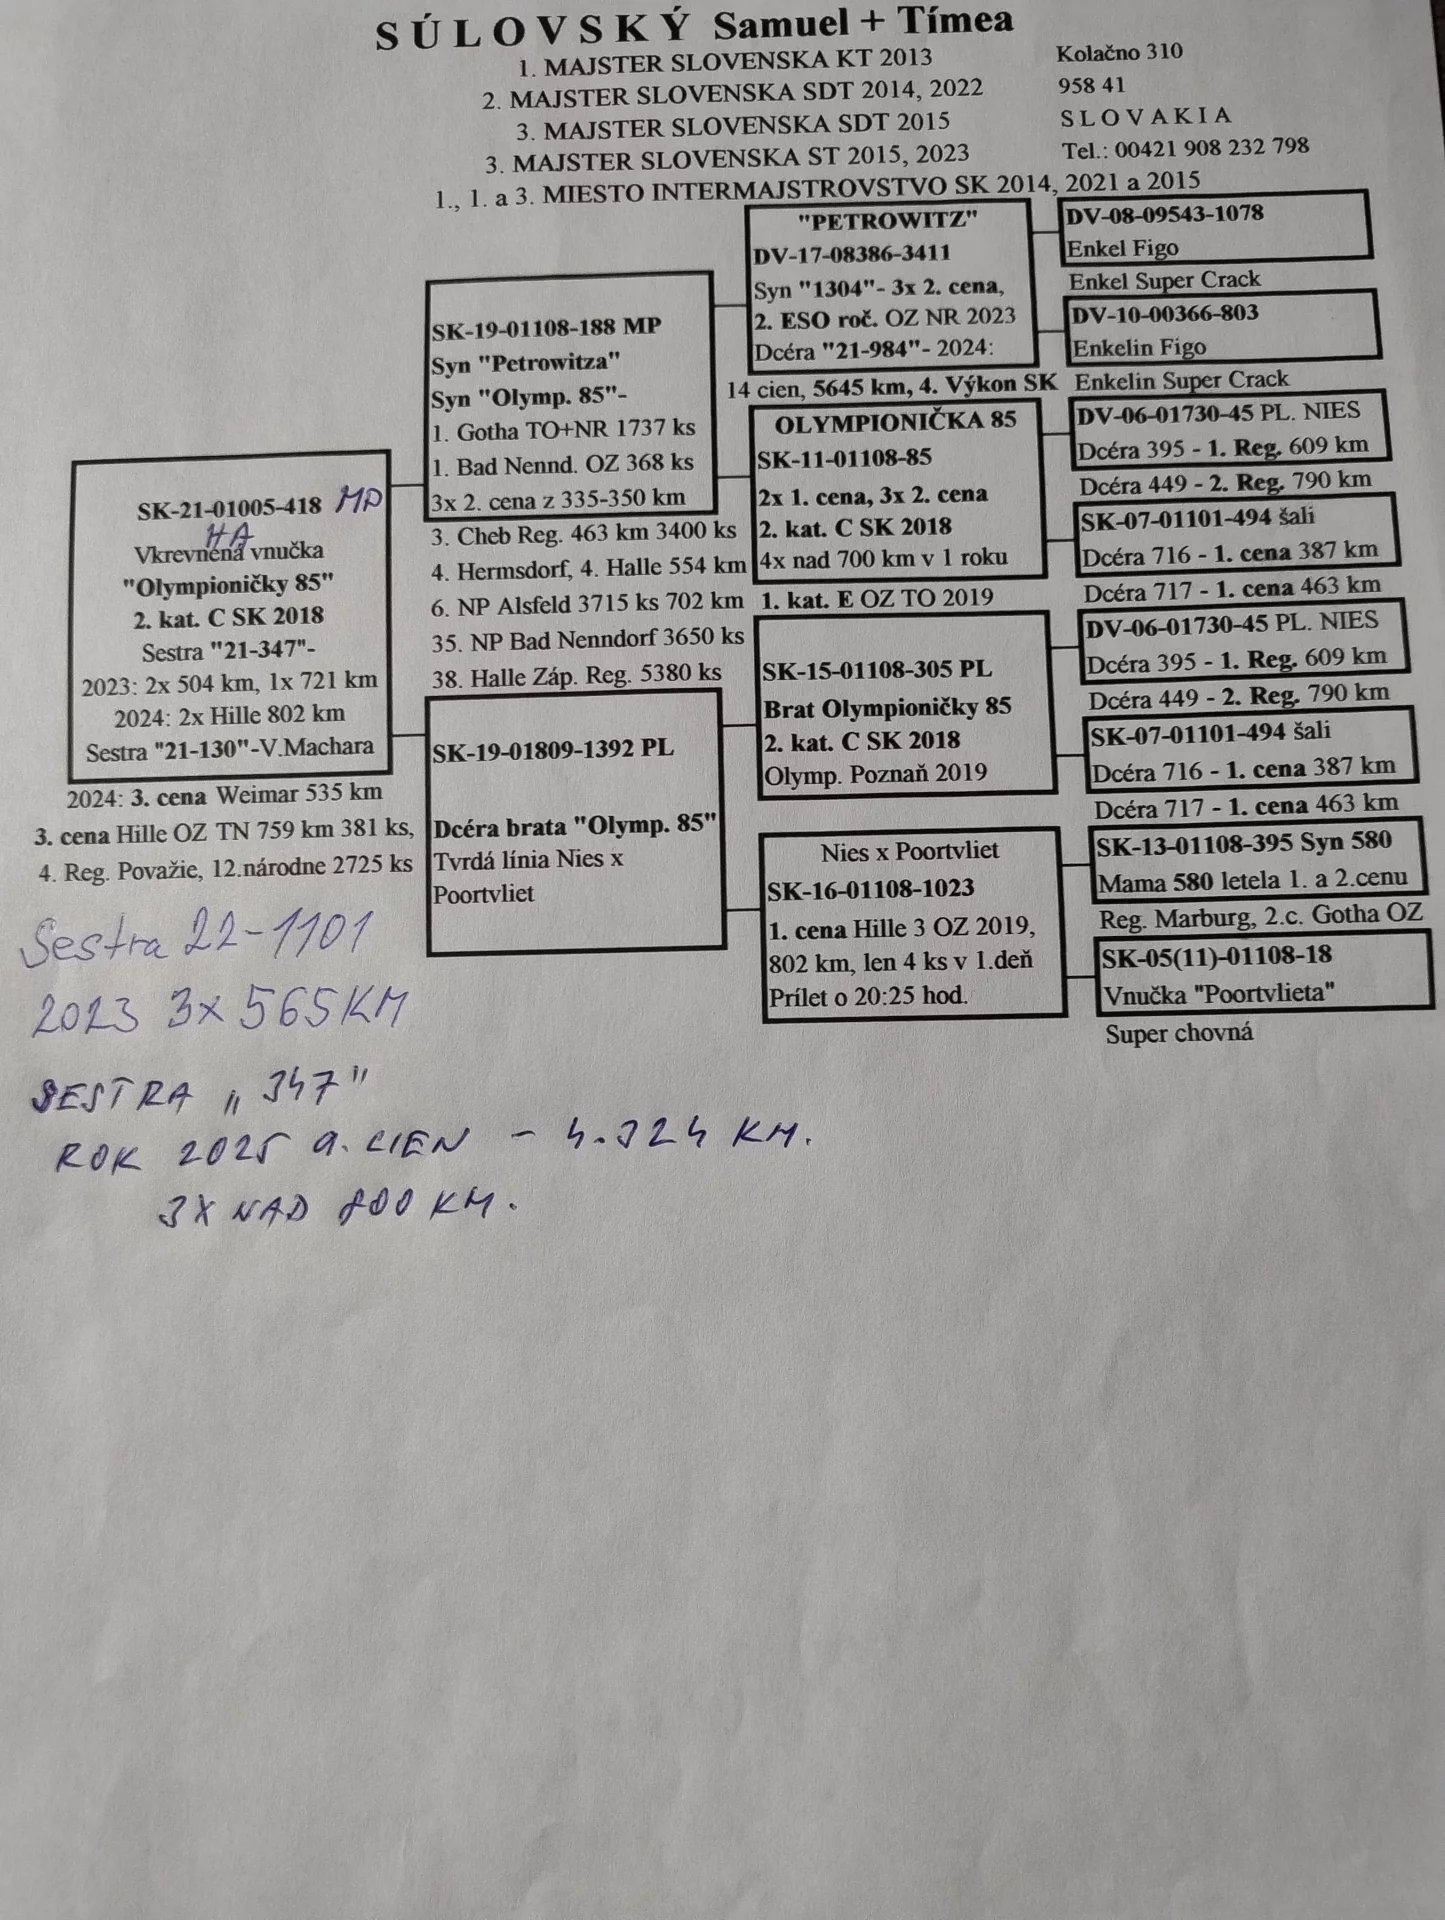 SÚLOVSKÝ Samuel + Tímea
1. MAJSTER SLOVENSKA KT 2013
2. MAJSTER SLOVENSKA SDT 2014, 2022
3. MAJSTER SLOVENSKA SDT 2015
3. MAJSTER SLOVENSKA ST 2015, 2023
1., 1. a 3. MIESTO INTERMAJSTROVSTVO SK 2014, 2021 a 2015
Kolačno 310
958 41
SLOVAKIA
Tel.: 00421 908 232 798
SK-21-01005-418 MP
HA
Vkrevnená vnučka
"Olympioničky 85"
2. kat. C SK 2018
Sestra "21-347"-
2023: 2x 504 km, 1x 721 km
2024: 2x Hille 802 km
Sestra "21-130"-V.Machara
2024: 3. cena Weimar 535 km
3. cena Hille OZ TN 759 km 381 ks,
4. Reg. Považie, 12.národne 2725 ks
SK-19-01108-188 MP
Syn "Petrowitza"
Syn "Olymp. 85"-
1. Gotha TO+NR 1737 ks
1. Bad Nennd. OZ 368 ks
3x 2. cena z 335-350 km
3. Cheb Reg. 463 km 3400 ks
4. Hermsdorf, 4. Halle 554 km
6. NP Alsfeld 3715 ks 702 km
35. NP Bad Nenndorf 3650 ks
38. Halle Záp. Reg. 5380 ks
SK-19-01809-1392 PL
Dcéra brata "Olymp. 85"
Tvrdá línia Nies x
Poortvliet
"PETROWITZ"
DV-17-08386-3411
Syn "1304"- 3x 2. cena,
2. ESO roč. OZ NR 2023
Dcéra "21-984"- 2024:
14 cien, 5645 km, 4. Výkon SK
OLYMPIONIČKA 85
SK-11-01108-85
2x 1. cena, 3x 2. cena
2. kat. C SK 2018
4x nad 700 km v 1 roku
1. kat. E OZ TO 2019
SK-15-01108-305 PL
Brat Olympioničky 85
2. kat. C SK 2018
Olymp. Poznaň 2019
Nies x Poortvliet
SK-16-01108-1023
1. cena Hille 3 OZ 2019,
802 km, len 4 ks v 1.deň
Prílet o 20:25 hod.
DV-08-09543-1078
Enkel Figo
Enkel Super Crack
DV-10-00366-803
Enkelin Figo
Enkelin Super Crack
DV-06-01730-45 PL. NIES
Dcéra 395 - 1. Reg. 609 km
Dcéra 449 - 2. Reg. 790 km
SK-07-01101-494 šali
Dcéra 716 - 1. cena 387 km
Dcéra 717 - 1. cena 463 km
DV-06-01730-45 PL. NIES
Dcéra 395 - 1. Reg. 609 km
Dcéra 449 - 2. Reg. 790 km
SK-07-01101-494 šali
Dcéra 716 - 1. cena 387 km
Dcéra 717 - 1. cena 463 km
SK-13-01108-395 Syn 580
Mama 580 letela 1. a 2.cenu
Reg. Marburg, 2.c. Gotha OZ
SK-05(11)-01108-18
Vnučka "Poortvlieta"
Super chovná
Sestra 22-1101
2023 3x 565KM
SESTRA „347"
ROK 2025 9. CIEN - 4.324 KM.
3X NAD 800 KM.